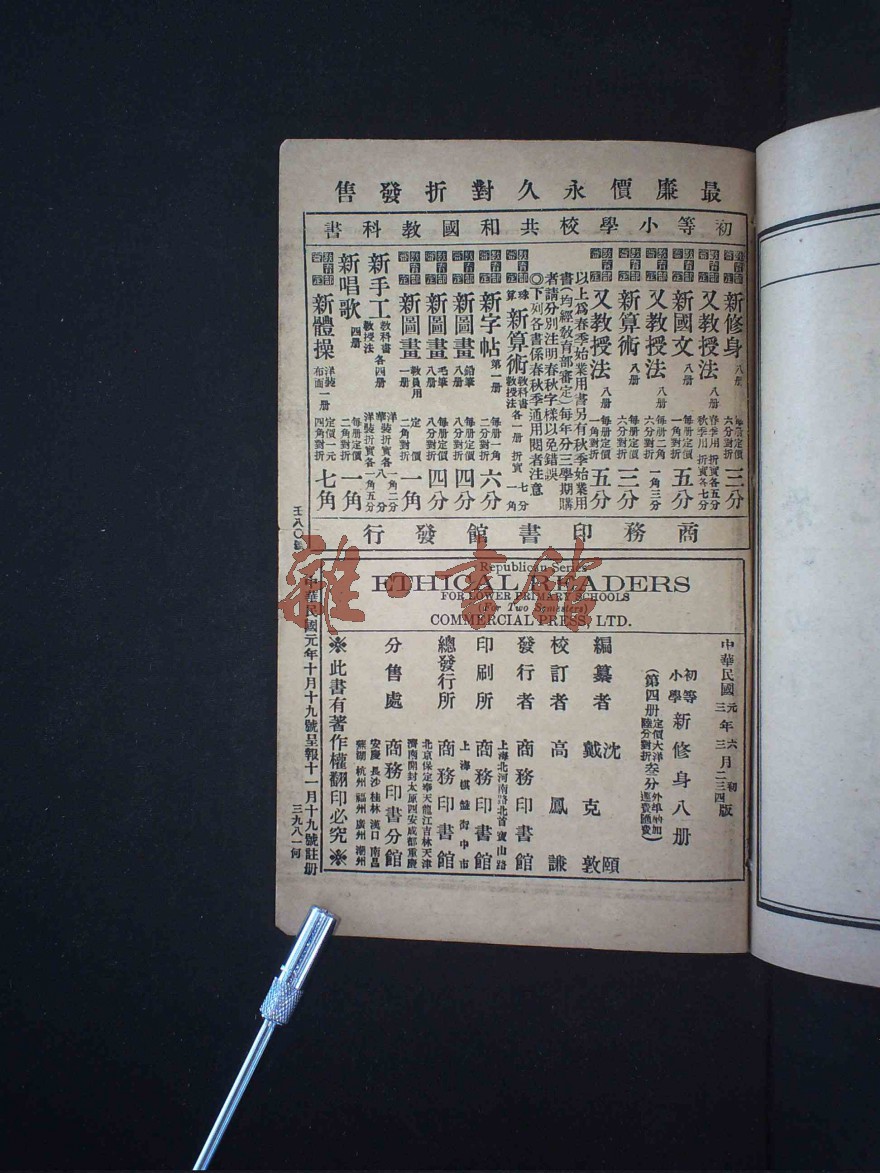 最廉價永久對折發售
初等小學校共和國教科書
教育部審定 新修身 八册 每册定價六分對折 三分
教育部審定 又教授法 八册 春季用折實各五分 秋季用折實各七分
教育部審定 新國文 八册 每册定價一角對折 五分
教育部審定 又教授法 八册 每册二角六分對折 一角三分
教育部審定 新算術 八册 每册定價六分對折 三分
教育部審定 又教授法 八册 每册定價一角對折 五分
以上爲春季始業用書另有秋季始業用
書(均經教育部審定)每年分三學期購
者請分別注明春秋字樣以免錯誤
◎下列各書係春秋季通用閱者注意
珠算 新算術 教科書教授法 各一册 折實 七分 一角
教育部審定 新字帖 第一册 每册一角二分對折 六分
教育部審定 新圖畫 鉛筆八册 每册定價八分對折 四分
教育部審定 新圖畫 毛筆八册 每册定價八分對折 四分
教育部審定 新圖畫 教員用一册 定價二角對折 一角
新手工 教科書教授法 各四册 華裝折實各八分 一角二分 洋裝折實各一角五分
新唱歌 四册 每册定價二角對折 一角
教育部審定 新體操 洋裝布面一册 定價一元四角對折 七角
商務印書館發行
壬八〇號
Republican Series
ETHICAL READERS
FOR LOWER PRIMARY SCHOOLS
(For Two Semesters)
COMMERCIAL PRESS, LTD.
中華民國元年六月初版
三年三月二三四版
初等小學 新修身八册
(第四册定價大洋叁分 陸分對折 外埠酌加運費匯費)
編纂者 沈頤 戴克敦
校訂者 高鳳謙
發行者 商務印書館
上海北河南路北首寶山路
印刷所 商務印書館
上海棋盤街中市
總發行所 商務印書館
北京保定奉天龍江吉林天津
濟南開封太原西安成都重慶
分售處 商務印書分館
安慶長沙桂林漢口南昌
蕪湖杭州福州廣州潮州
※此書有著作權翻印必究※
中華民國元年十月十九號呈報十一月十九號註册
三九八一何
雜·書館